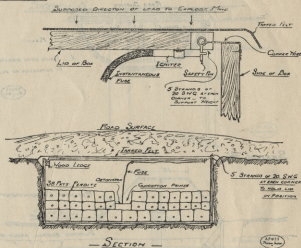 SUPPOSED DIRECTION OF LOAD TO EXPLODE MINE
TARRED FELT
COPPER WIRE
LID OF BOX
IGNITER
INSTANTANEOUS
FUSE
SAFETY PIN
SIDE OF BOX
5 STRANDS OF
20 SWG AT EACH
CORNER TO
SUPPORT WEIGHT
ROAD SURFACE
TARRED FELT
WOOD LEDGE
DETONATOR
FUSE
GUNCOTTON PRIMER
5 STRANDS OF 20 SWG
AT EACH CORNER
TO HOLD LID
IN POSITION
- SECTION -